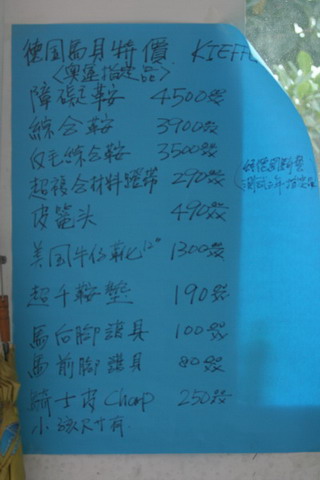 德国馬具特價 KIEFF
(奧運指定品)
障礙鞍 4500級
綜合鞍 3900級
反毛綜合鞍 3500級
超複合材料蹬帶 290級
皮籠头 490級
美国牛仔靴 1300級
超千鞍墊 190級
馬后腳護具 100級
馬前腳護具 80級
騎士皮Chap 250級
小孩尺寸有